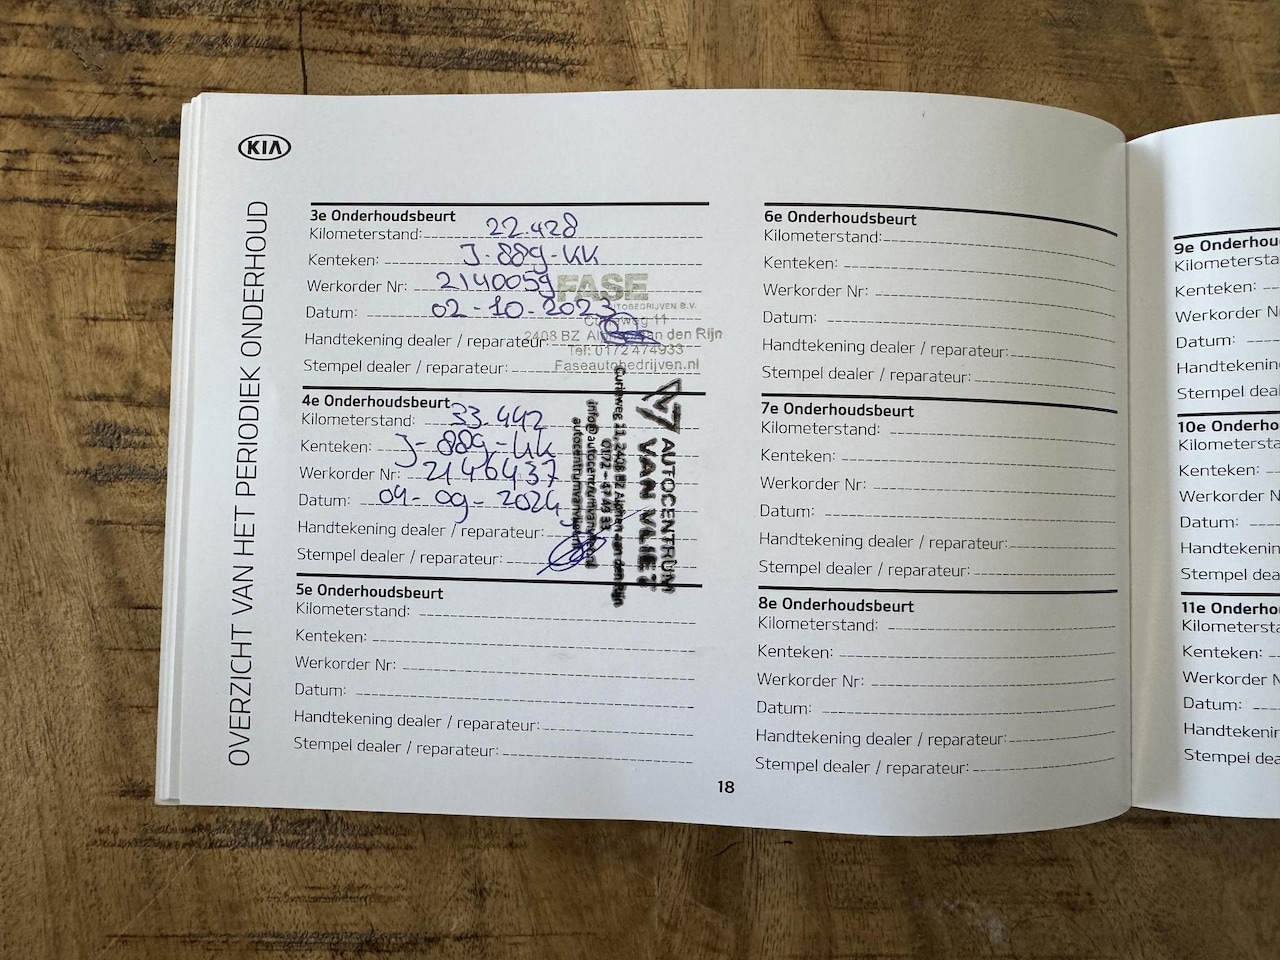 KIA
OVERZICHT VAN HET PERIODIEK ONDERHOUD
3e Onderhoudsbeurt
Kilometerstand: 22.428
Kenteken: J-889-KK
Werkorder Nr: 2140059
Datum: 02-10-2023
Handtekening dealer / reparateur:
Stempel dealer / reparateur:
FASE
AUTOBEDRIJVEN B.V.
Curieweg 11
2408 BZ Alphen aan den Rijn
Tel: 0172 474933
Faseautobedrijven.nl
4e Onderhoudsbeurt
Kilometerstand: 33.442
Kenteken: J-889-KK
Werkorder Nr: 2146437
Datum: 09-09-2024
Handtekening dealer / reparateur:
Stempel dealer / reparateur:
AUTOCENTRUM
VAN VLIET
Curieweg 11, 2408 BZ Alphen aan den Rijn
0172 - 47 49 33
5e Onderhoudsbeurt
Kilometerstand:
Kenteken:
Werkorder Nr:
Datum:
Handtekening dealer / reparateur:
Stempel dealer / reparateur:
6e Onderhoudsbeurt
Kilometerstand:
Kenteken:
Werkorder Nr:
Datum:
Handtekening dealer / reparateur:
Stempel dealer / reparateur:
7e Onderhoudsbeurt
Kilometerstand:
Kenteken:
Werkorder Nr:
Datum:
Handtekening dealer / reparateur:
Stempel dealer / reparateur:
8e Onderhoudsbeurt
Kilometerstand:
Kenteken:
Werkorder Nr:
Datum:
Handtekening dealer / reparateur:
Stempel dealer / reparateur:
18
9e Onderhou
Kilometersta
Kenteken:
Werkorder N
Datum:
Handtekenin
Stempel deal
10e Onderho
Kilometersta
Kenteken:
Werkorder N
Datum:
Handtekenin
Stempel dea
11e Onderho
Kilometersta
Kenteken:
Werkorder N
Datum:
Handtekenin
Stempel dea